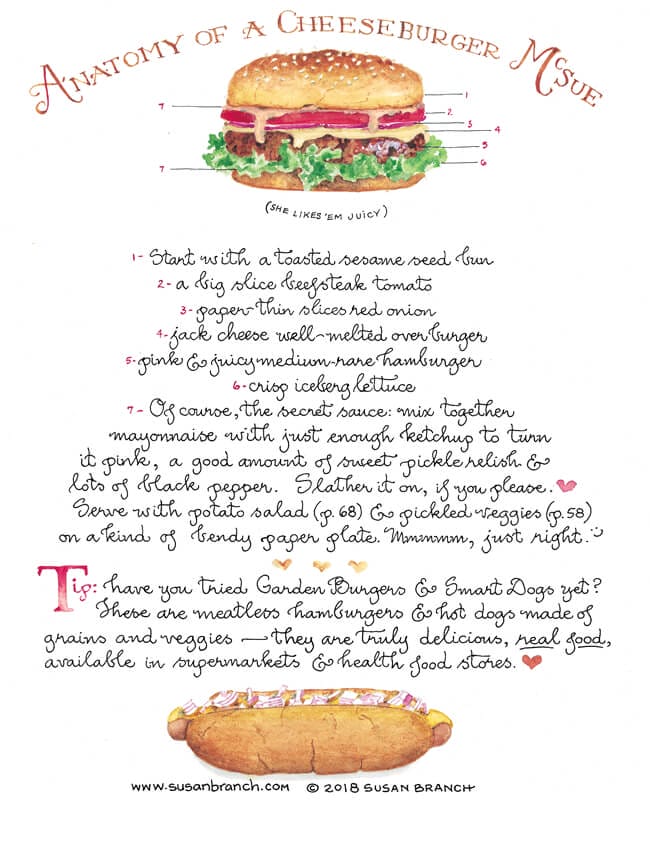 ANATOMY OF A CHEESEBURGER McSUE
1
7
2
3
4
5
6
7
(SHE LIKES 'EM JUICY)
1- Start with a toasted sesame seed bun
2- a big slice beefsteak tomato
3- paper-thin slices red onion
4- jack cheese well-melted over burger
5- pink & juicy medium-rare hamburger
6- crisp iceberg lettuce
7- Of course, the secret sauce: mix together
mayonnaise with just enough ketchup to turn
it pink, a good amount of sweet pickle relish &
lots of black pepper. Slather it on, if you please.
Serve with potato salad (p. 68) & pickled veggies (p. 58)
on a kind of bendy paper plate. Mmmmm, just right.
Tip: have you tried Garden Burgers & Smart Dogs yet?
These are meatless hamburgers & hot dogs made of
grains and veggies — they are truly delicious, real food,
available in supermarkets & health food stores.
www.susanbranch.com © 2018 SUSAN BRANCH